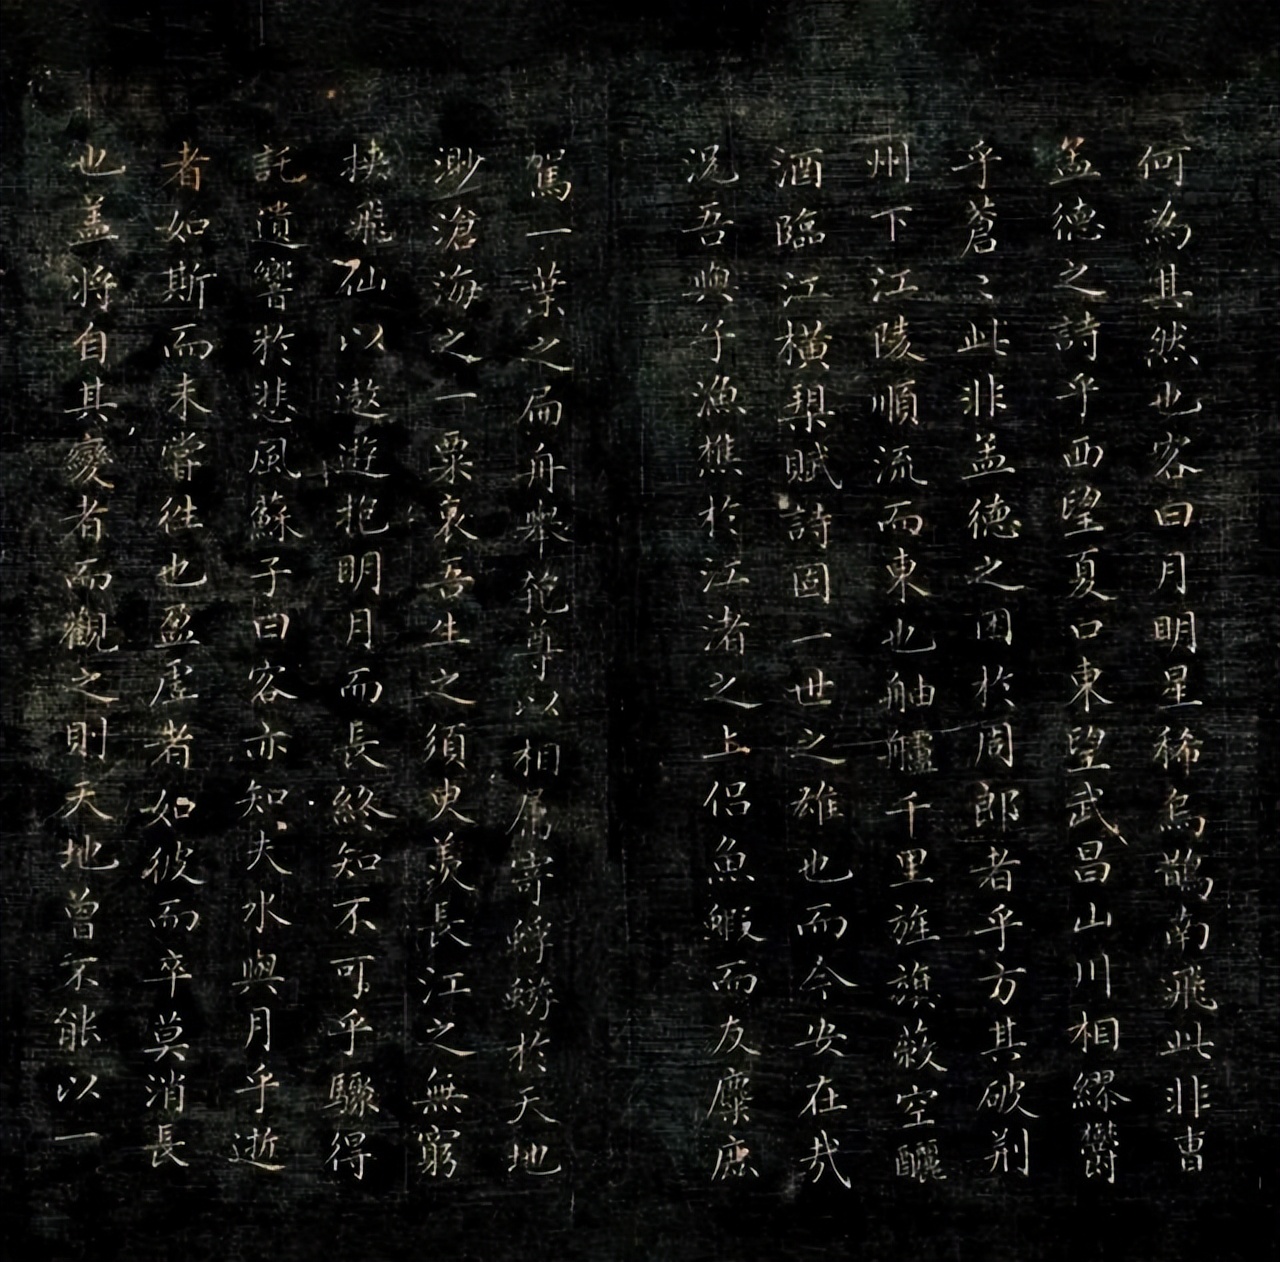 何為其然也容曰月明星稀烏鵲南飛此非曹
孟德之詩乎西望夏口東望武昌山川相繆欝
乎蒼〻此非孟德之困於周郎者乎方其破荆
州下江陵順流而東也舳艫千里旌旗蔽空釃
酒臨江橫槊賦詩固一世之雄也而今安在㢤
况吾與子漁樵於江渚之上侣魚鰕而友麋鹿
駕一葉之扁舟舉匏尊以相屬寄蜉蝣於天地
渺滄海之一粟哀吾生之須臾羨長江之無窮
挾飛仙以遨遊抱明月而長終知不可乎驟得
託遺響於悲風蘇子曰客亦知夫水與月乎逝
者如斯而未嘗往也盈虛者如彼而卒莫消長
也盖將自其變者而觀之則天地曾不能以一